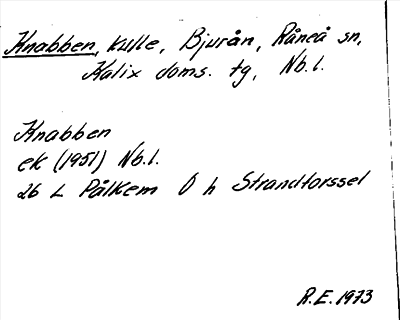 Knabben, kulle, Bjurån, Råneå sn,
Kalix doms. tg, Nb.l.
Knabben
ek (1951) Nb.l.
26 L Pålkem 0 h Strandtorssel
R.E. 1973